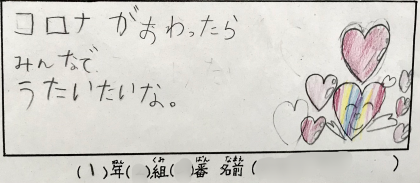 コロナ がおわったら
みんなで
うたいたいな。
(1)年( )組( )番 名前( )